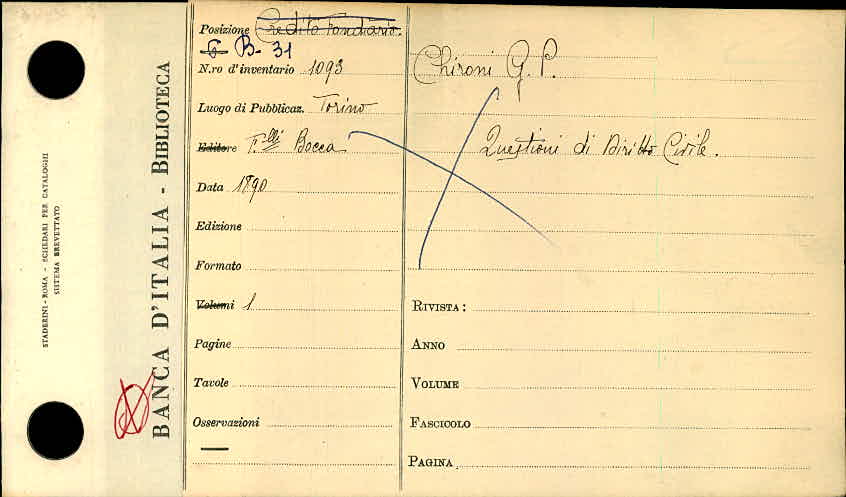 STADERINI - ROMA - SCHEDARI PER CATALOGHI
SISTEMA BREVETTATO
BANCA D'ITALIA - BIBLIOTECA
Posizione Credito Fondiario.
6 B- 31
N.ro d'inventario 1093
Luogo di Pubblicaz. Torino
Editore F.lli Bocca
Data 1890
Edizione
Formato
Volumi 1
Pagine
Tavole
Osservazioni
Chironi G. P.
Questioni di Diritto Civile.
RIVISTA:
ANNO
VOLUME
FASCICOLO
PAGINA